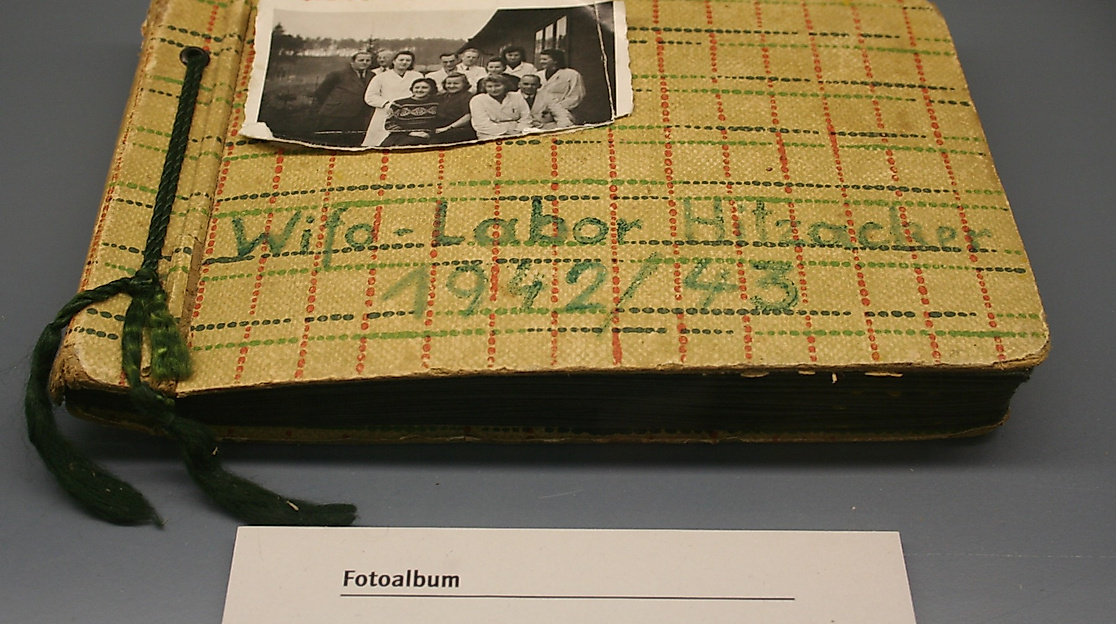 Wifo-Labor Hitzacker
1942/43
Fotoalbum